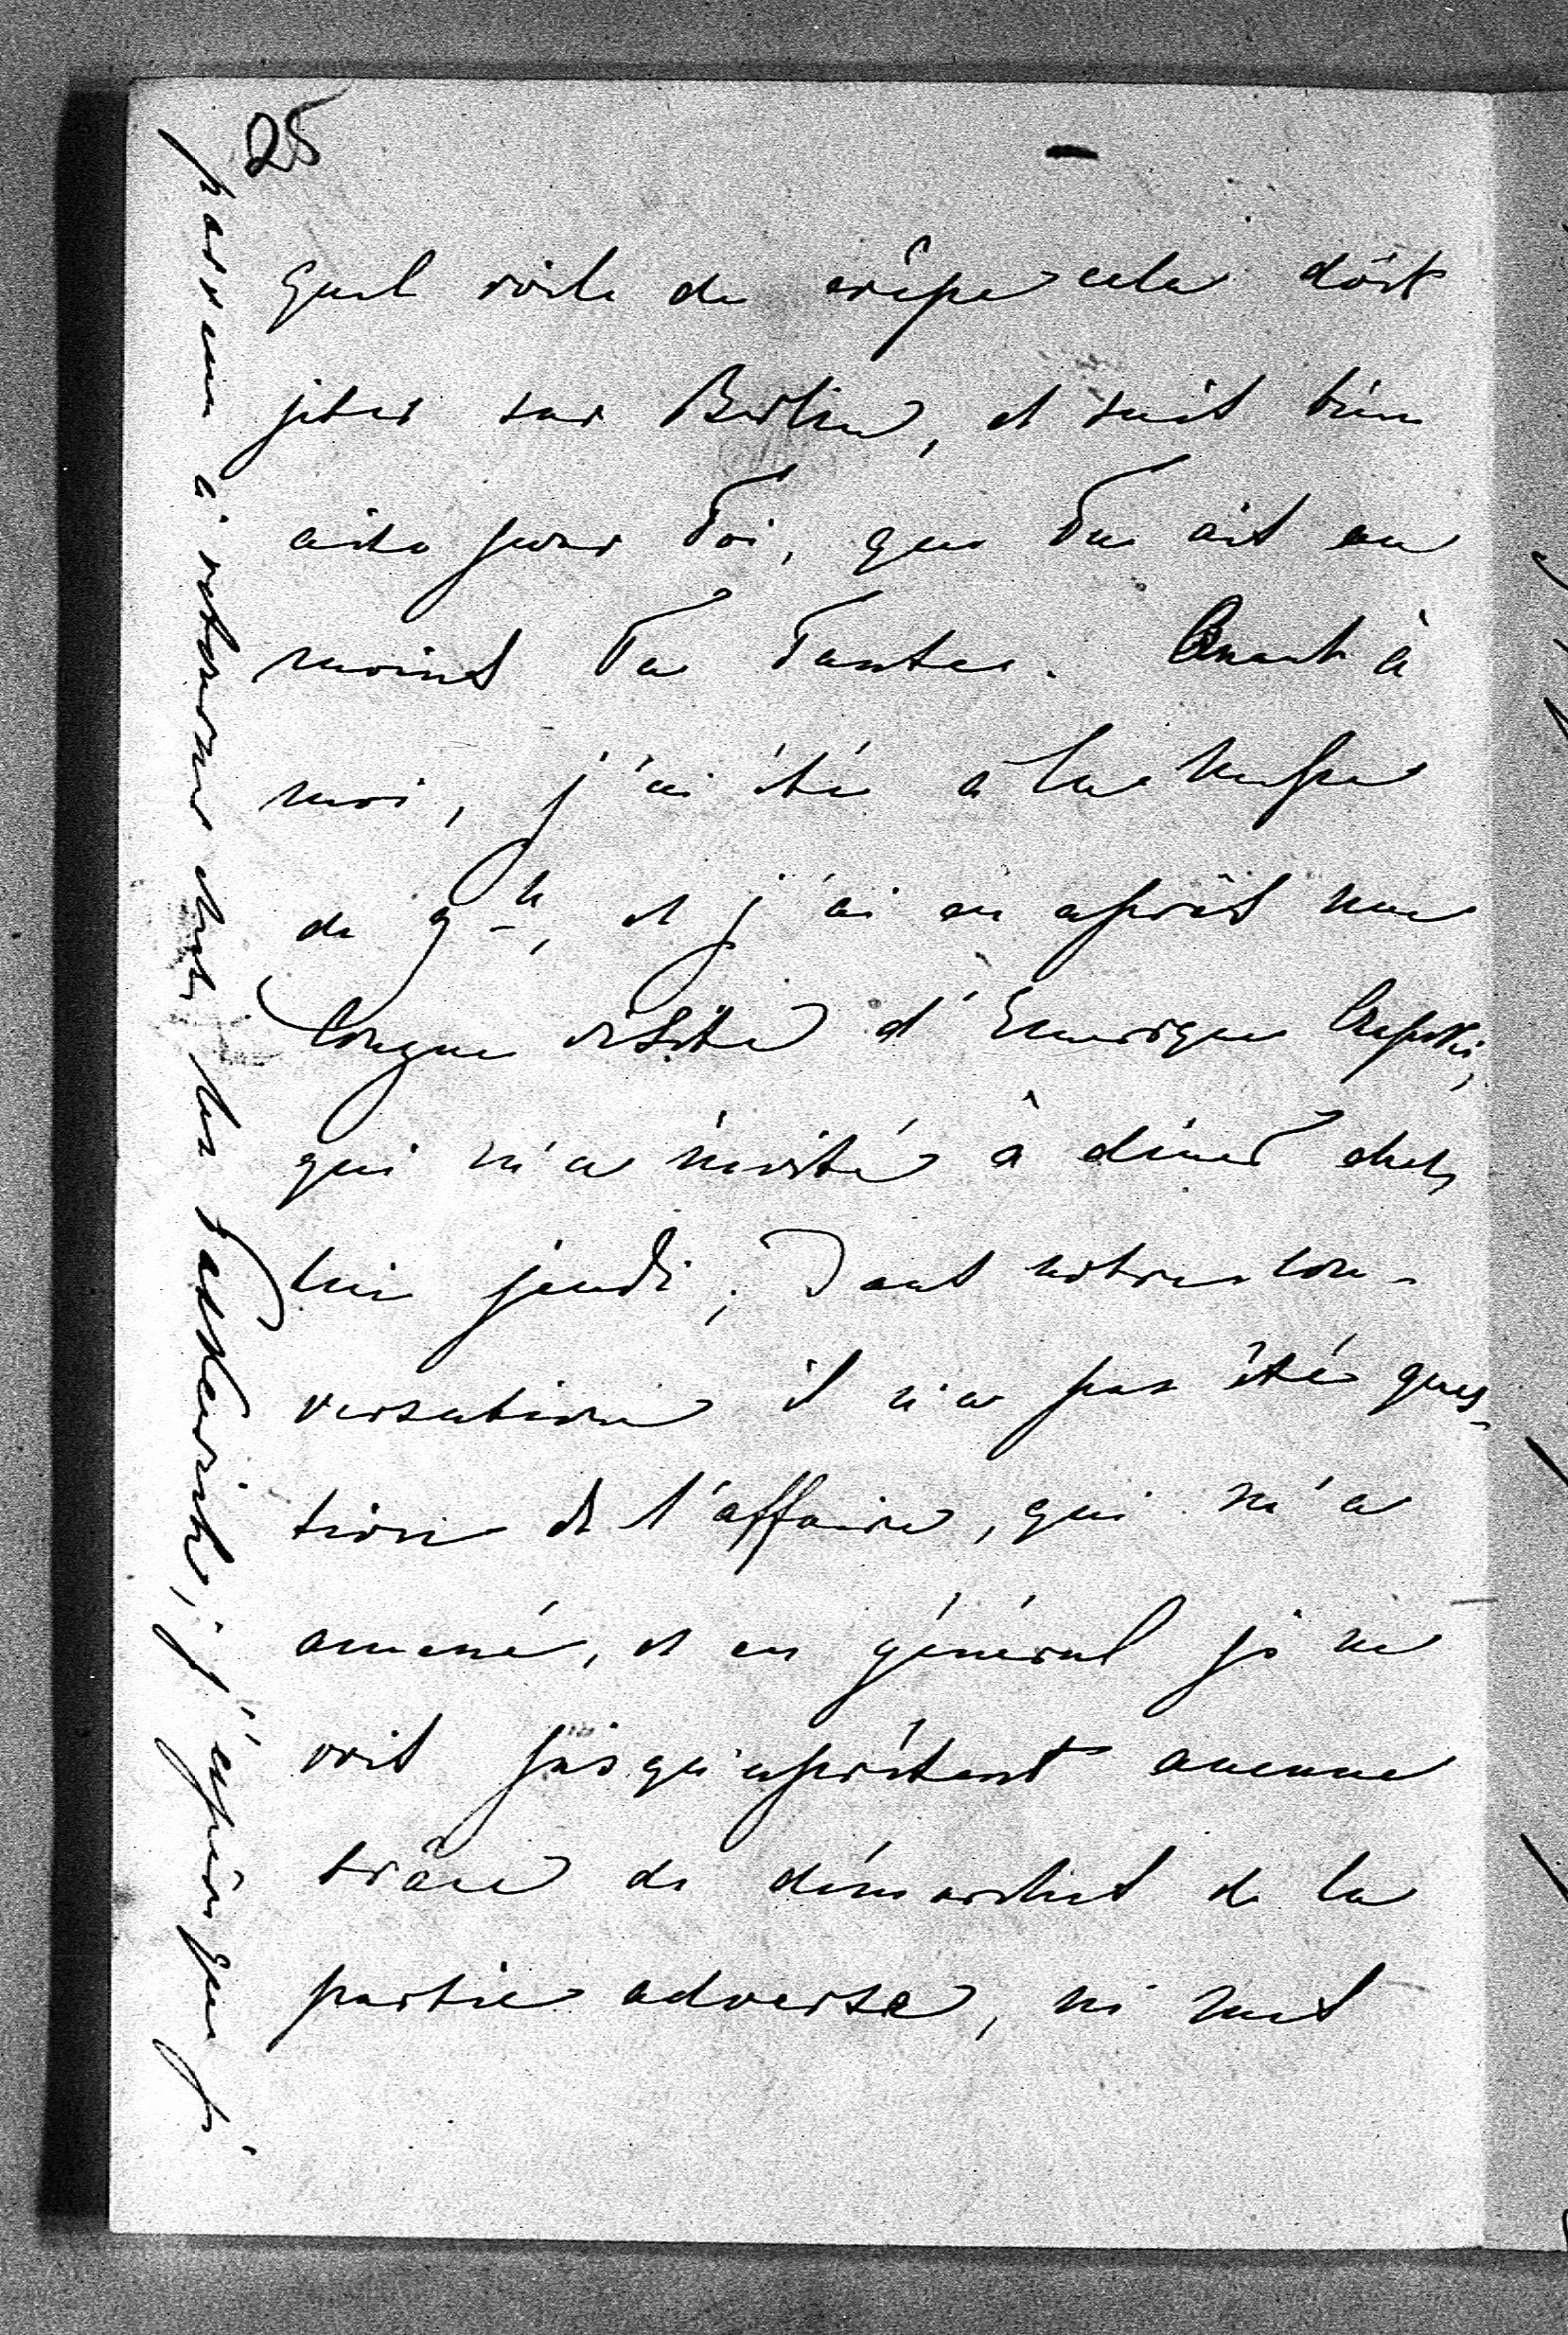 25
quel voile de crêpe cela doit
jeter sur Berlin, et suis bien
aise pour Toi, que Tu ais au
moins Ta Tante. Quant à
moi, j'ai été à la Messe
de 9 h, et j'ai eu après une
longue visite d'Enrique
qui m'a invité à dîner chez
lui jeudi; Dans notre con-
versation il n'a pas été ques-
tion de l'affaire, qui m'a
amené, et en général je ne
vois jusqu'àprésent aucune
trâce de démarches de la
partie adverse, ni mes
à retourner chez les j'espère que je